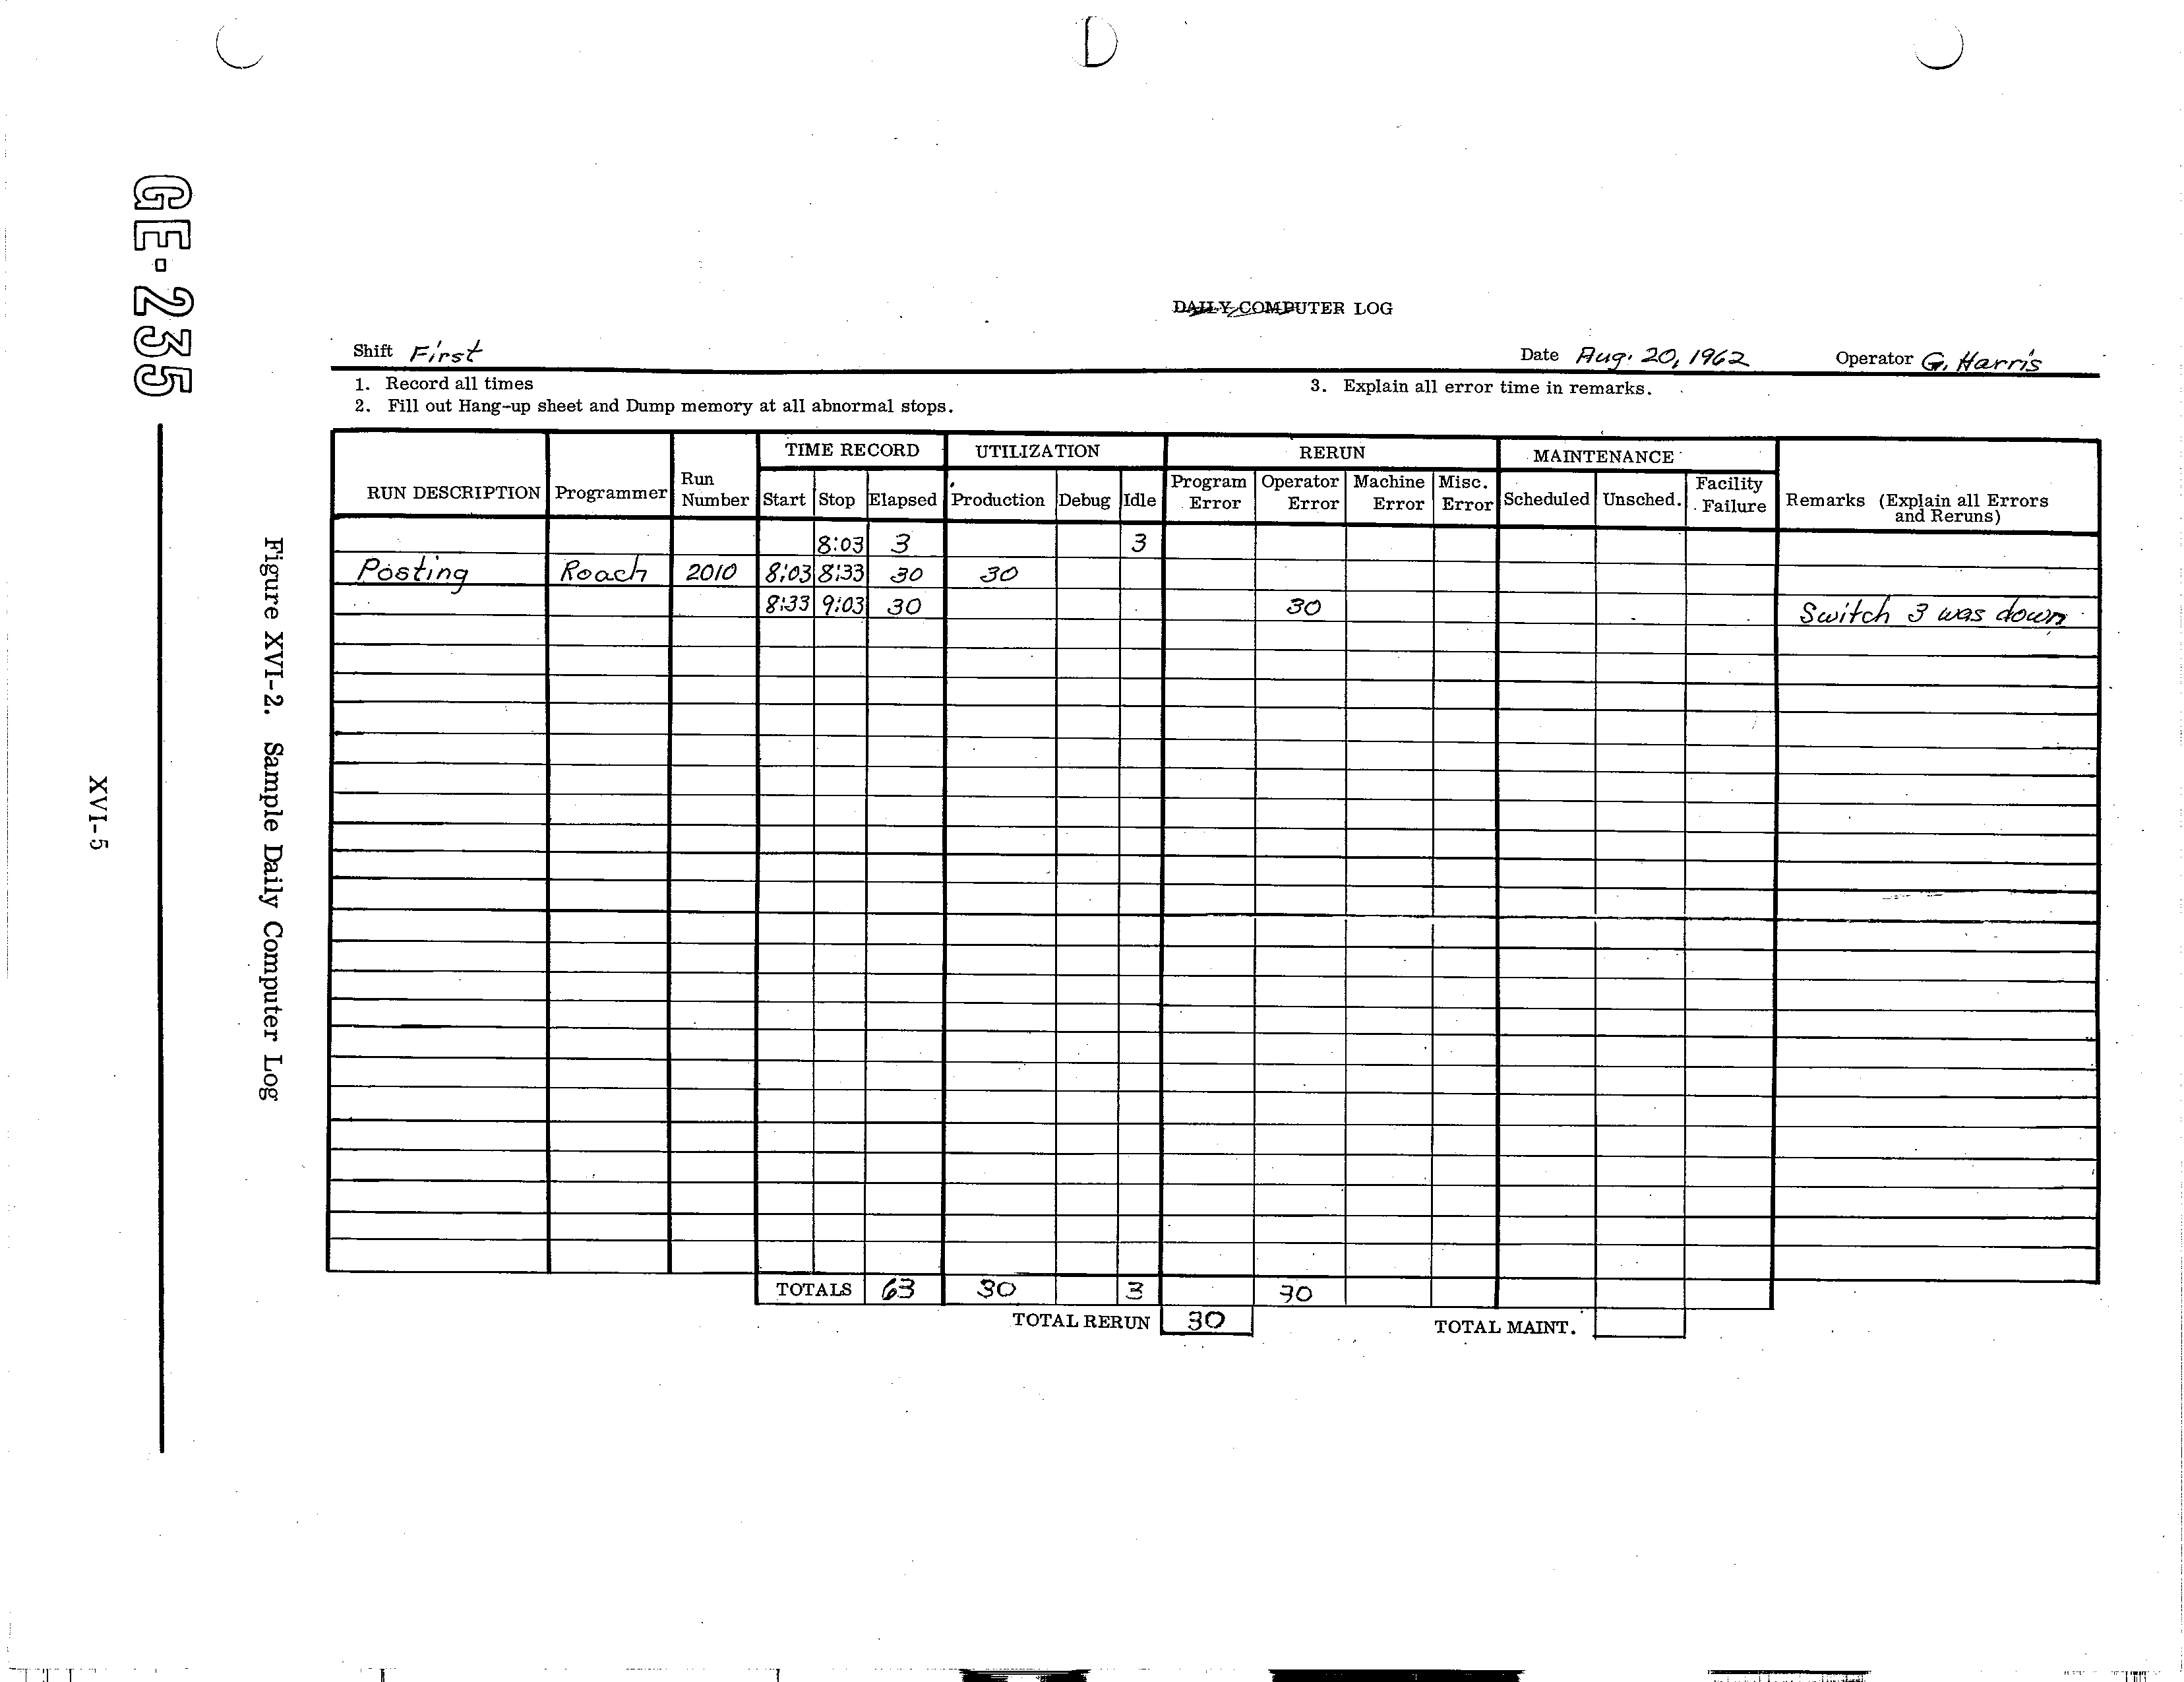 GE-235
DAILY COMPUTER LOG
Shift First Date Aug. 20, 1962 Operator G. Harris
1. Record all times 3. Explain all error time in remarks.
2. Fill out Hang-up sheet and Dump memory at all abnormal stops.
TIME RECORD UTILIZATION RERUN MAINTENANCE
RUN DESCRIPTION Programmer Run Number Start Stop Elapsed Production Debug Idle Program Error Operator Error Machine Error Misc. Error Scheduled Unsched. Facility Failure Remarks (Explain all Errors and Reruns)
8:03 3 3
Posting Roach 2010 8:03 8:33 30 30
8:33 9:03 30 30 Switch 3 was down
TOTALS 63 30 3 30
TOTAL RERUN 30 TOTAL MAINT.
Figure XVI-2. Sample Daily Computer Log
XVI-5